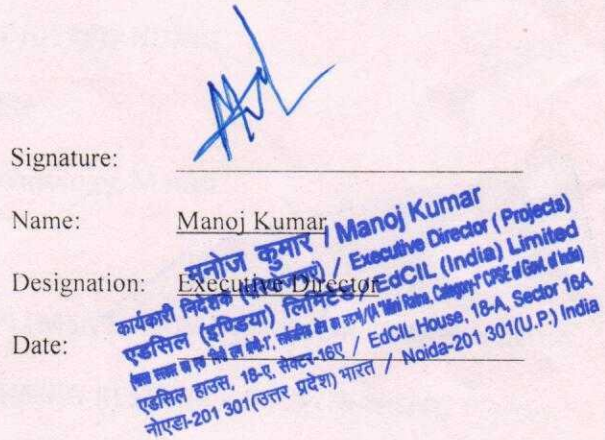 Signature:
Name: Manoj Kumar
Designation: Executive Director
Date:
मनोज कुमार / Manoj Kumar
कार्यकारी निदेशक (परियोजनाएं) / Executive Director (Projects)
एडसिल (इण्डिया) लिमिटेड / EdCIL (India) Limited
(A "Mini Ratna, Category-I" CPSE of Govt. of India)
एडसिल हाउस, 18-ए, सेक्टर-16ए / EdCIL House, 18-A, Sector 16A
नोएडा-201 301(उत्तर प्रदेश) भारत / Noida-201 301(U.P.) India